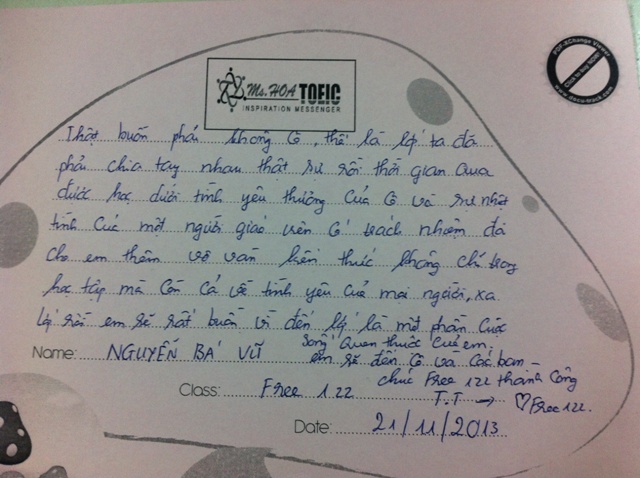 PDF-XChange Viewer
Click to buy NOW!
www.docu-track.com
Ms.HOA TOEIC
INSPIRATION MESSENGER
Thật buồn phải không Cô, thế là lớp ta đã
phải chia tay nhau thật sự rồi thời gian qua
được học dưới tình yêu thương của Cô và sự nhiệt
tình của một người giáo viên có trách nhiệm đã
cho em thêm vô vàn kiến thức không chỉ trong
học tập mà còn cả về tình yêu của mọi người, xa
lớp rồi em sẽ rất buồn vì đến lớp là một phần cuộc
sống quen thuộc của em,
em sẽ đến Cô và các bạn –
Name: NGUYỄN BÁ VŨ
chúc Free 122 thành công
Class: Free 122
T.T → ♡ Free 122.
Date: 21/11/2013